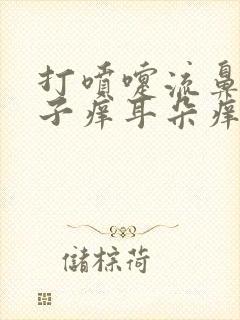 打喷嚏流鼻
子痒耳朵痒
储棕荷